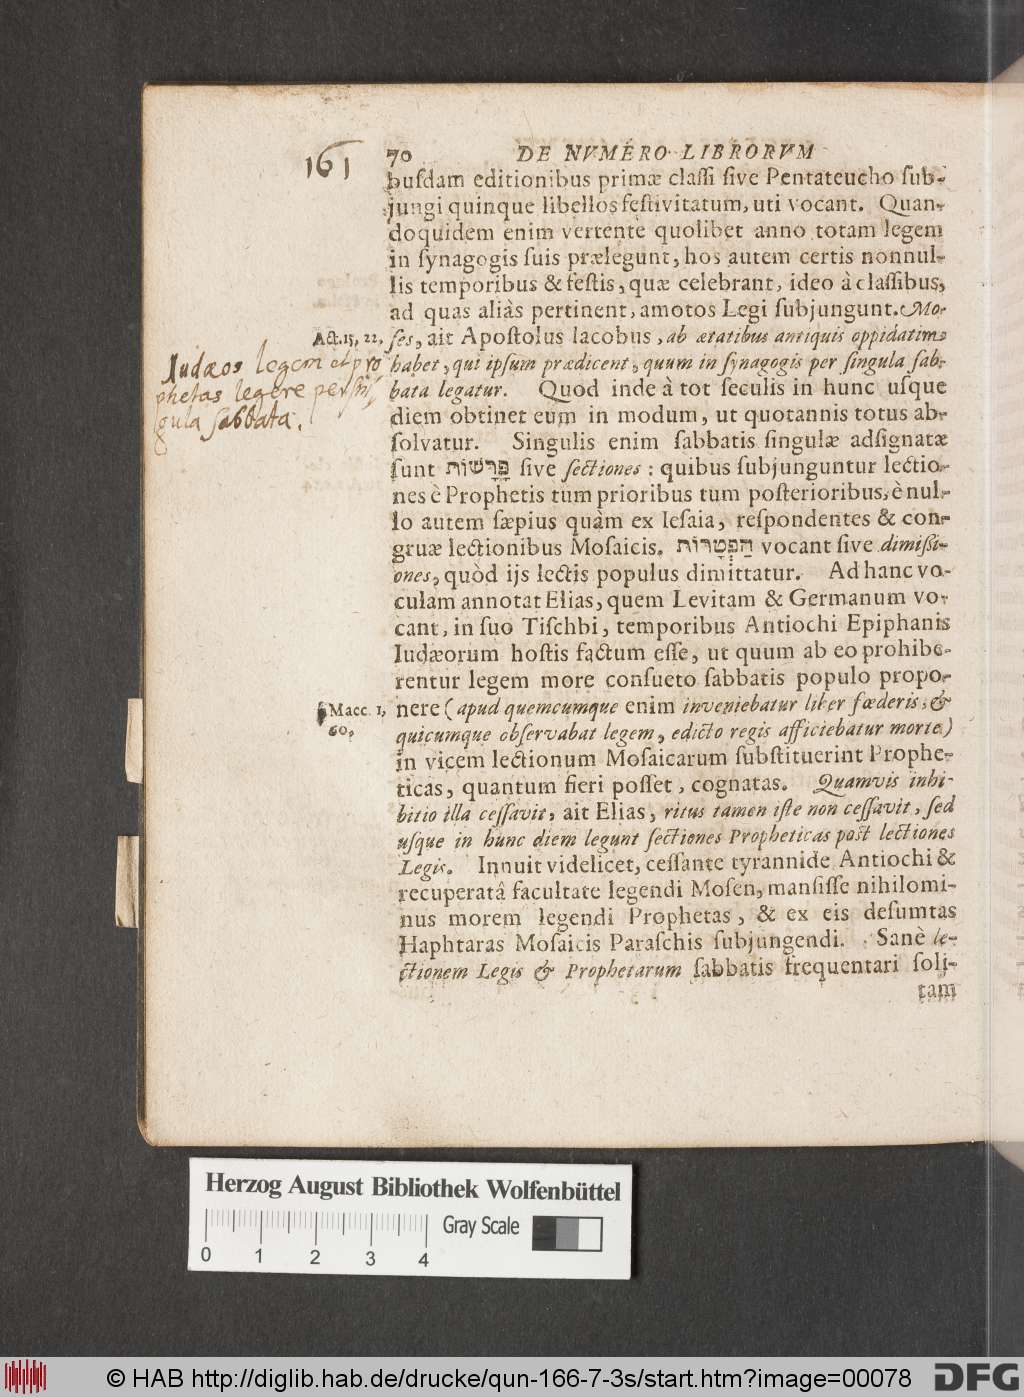 161
70 DE NVMERO LIBRORVM
busdam editionibus primæ classi sive Pentateucho sub-
jungi quinque libellos festivitatum, uti vocant. Quan-
doquidem enim vertente quolibet anno totam legem
in synagogis suis prælegunt, hos autem certis nonnul-
lis temporibus & festis, quæ celebrant, ideo à classibus,
ad quas aliàs pertinent, amotos Legi subjungunt. Mo-
Act. 15, 22,
ses, ait Apostolus Iacobus, ab ætatibus antiquis oppidatim
habet, qui ipsum prædicent, quum in synagogis per singula sab-
bata legatur. Quod inde à tot seculis in hunc usque
Judæos legem et pro
phetas legere per sin
gula sabbata.
diem obtinet eum in modum, ut quotannis totus ab-
solvatur. Singulis enim sabbatis singulæ adsignatæ
sunt פָּרָשׁוֹת sive sectiones: quibus subjunguntur lectio-
nes è Prophetis tum prioribus tum posterioribus, è nul-
lo autem sæpius quàm ex Iesaia, respondentes & con-
gruæ lectionibus Mosaicis. הַפְטָרוֹת vocant sive dimissi-
ones, quòd ijs lectis populus dimittatur. Ad hanc vo-
culam annotat Elias, quem Levitam & Germanum vo-
cant, in suo Tischbi, temporibus Antiochi Epiphanis
Iudæorum hostis factum esse, ut quum ab eo prohibe-
rentur legem more consueto sabbatis populo propo-
Macc. 1,
60,
nere (apud quemcumque enim inveniebatur liber fœderis, &
quicumque observabat legem, edicto regis afficiebatur morte)
in vicem lectionum Mosaicarum substituerint Prophe-
ticas, quantum fieri posset, cognatas. Quamvis inhi-
bitio illa cessavit, ait Elias, ritus tamen iste non cessavit, sed
usque in hunc diem legunt sectiones Propheticas post lectiones
Legis. Innuit videlicet, cessante tyrannide Antiochi &
recuperatâ facultate legendi Mosen, mansisse nihilomi-
nus morem legendi Prophetas, & ex eis desumtas
Haphtaras Mosaicis Paraschis subjungendi. Sanè le-
ctionem Legis & Prophetarum sabbatis frequentari soli-
tam
Herzog August Bibliothek Wolfenbüttel
Gray Scale
0 1 2 3 4
© HAB http://diglib.hab.de/drucke/qun-166-7-3s/start.htm?image=00078
DFG